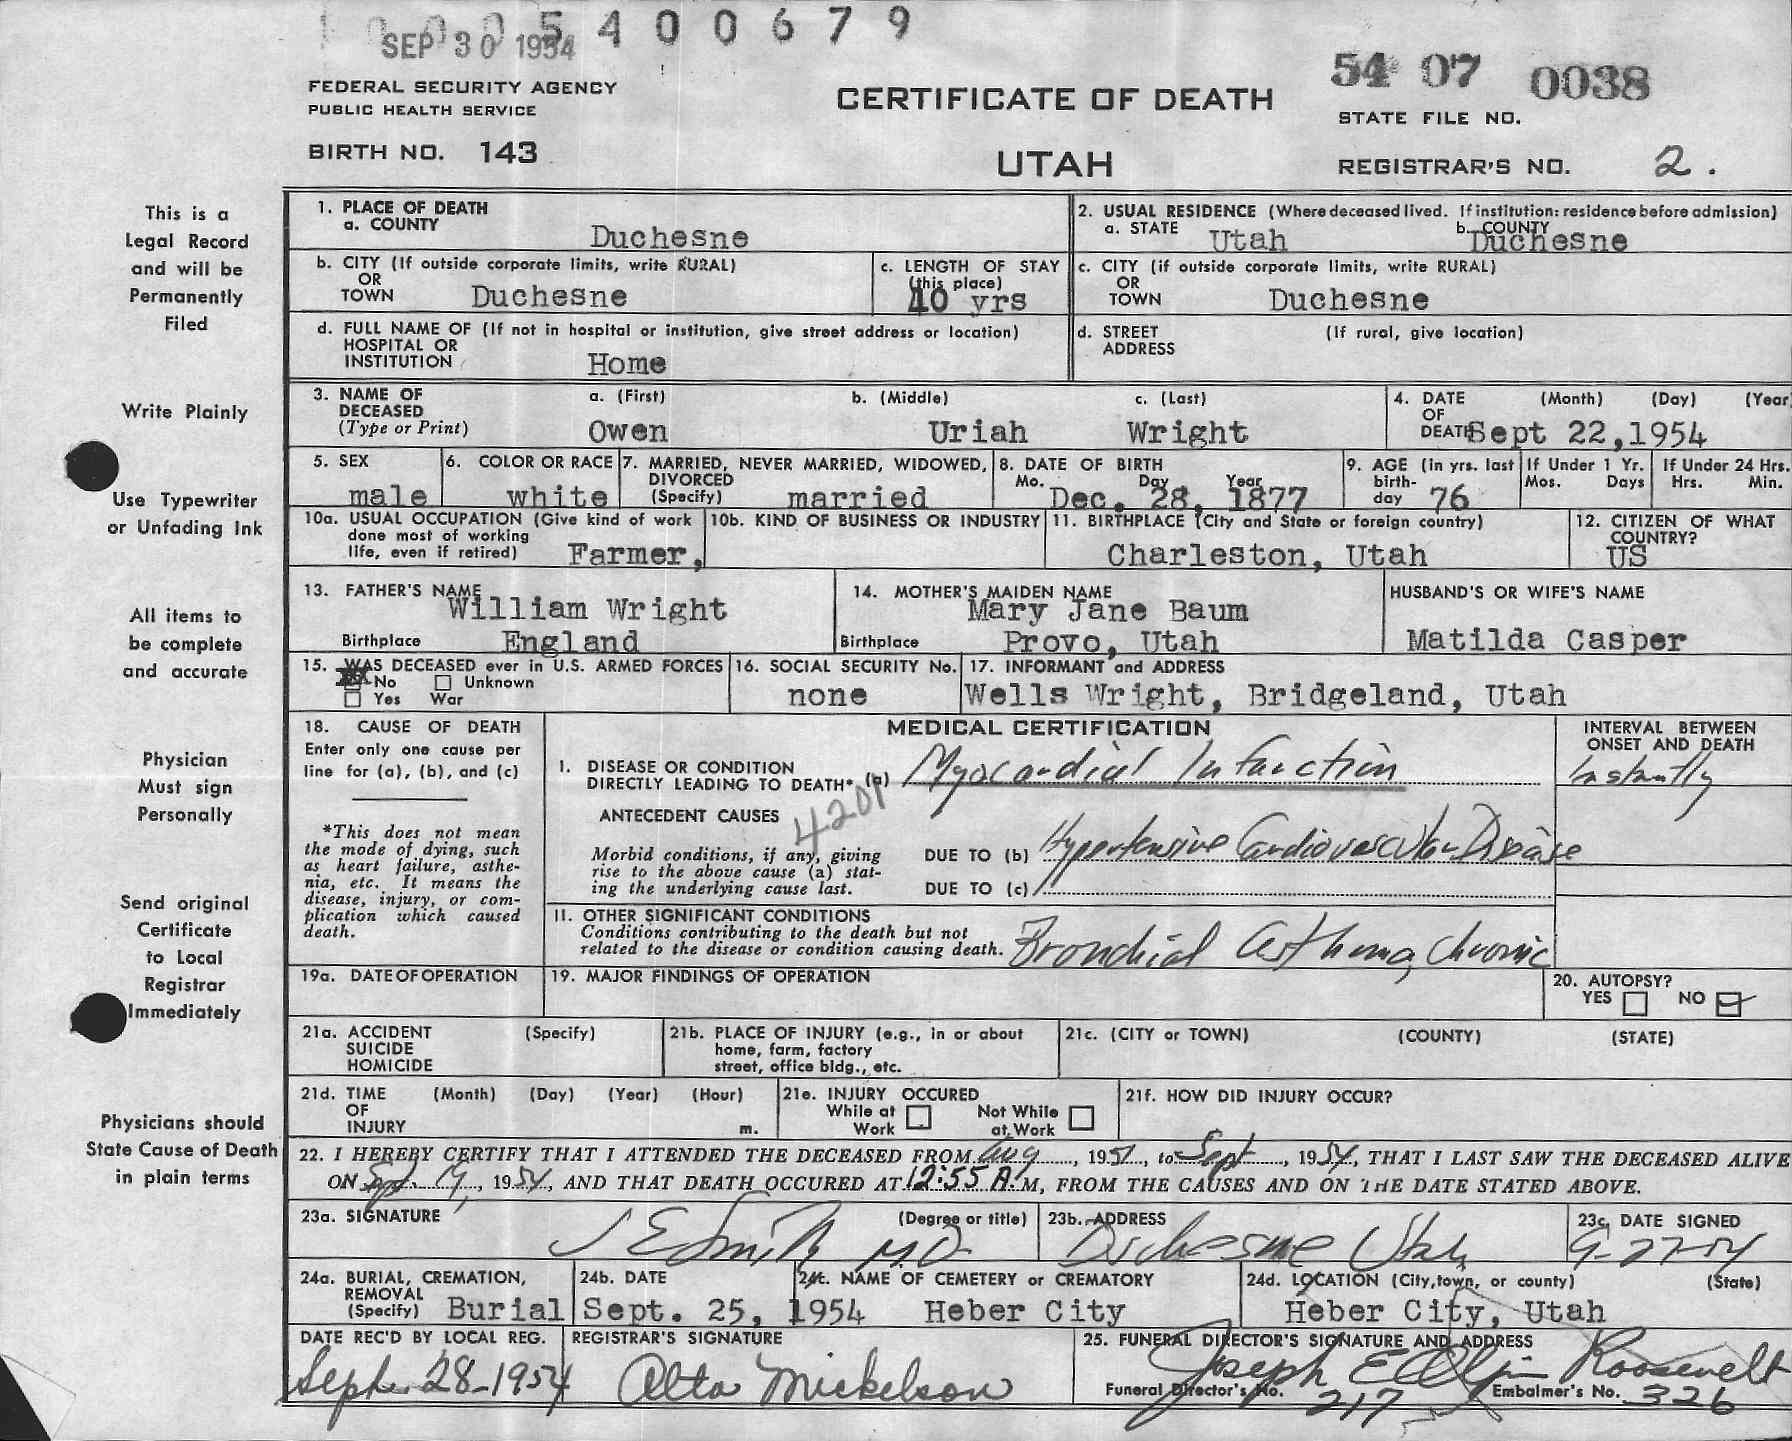 5400679
SEP 30 1954
54 07 0038
FEDERAL SECURITY AGENCY
PUBLIC HEALTH SERVICE
CERTIFICATE OF DEATH
STATE FILE NO.
BIRTH NO. 143
UTAH
REGISTRAR'S NO. 2.
This is a
Legal Record
and will be
Permanently
Filed
Write Plainly
Use Typewriter
or Unfading Ink
All items to
be complete
and accurate
Physician
Must sign
Personally
Send original
Certificate
to Local
Registrar
Immediately
Physicians should
State Cause of Death
in plain terms
1. PLACE OF DEATH
a. COUNTY
Duchesne
2. USUAL RESIDENCE (Where deceased lived. If institution: residence before admission)
a. STATE Utah b. COUNTY Duchesne
b. CITY (If outside corporate limits, write RURAL)
OR
TOWN Duchesne
c. LENGTH OF STAY
(this place)
40 yrs
c. CITY (if outside corporate limits, write RURAL)
OR
TOWN Duchesne
d. FULL NAME OF (If not in hospital or institution, give street address or location)
HOSPITAL OR
INSTITUTION Home
d. STREET (If rural, give location)
ADDRESS
3. NAME OF a. (First) b. (Middle) c. (Last)
DECEASED
(Type or Print) Owen Uriah Wright
4. DATE (Month) (Day) (Year
OF
DEATH Sept 22,1954
5. SEX
male
6. COLOR OR RACE
white
7. MARRIED, NEVER MARRIED, WIDOWED,
DIVORCED
(Specify) married
8. DATE OF BIRTH
Mo. Day Year
Dec. 28, 1877
9. AGE (in yrs. last
birth-
day 76
If Under 1 Yr.
Mos. Days
If Under 24 Hrs.
Hrs. Min.
10a. USUAL OCCUPATION (Give kind of work
done most of working
life, even if retired) Farmer,
10b. KIND OF BUSINESS OR INDUSTRY
11. BIRTHPLACE (City and State or foreign country)
Charleston, Utah
12. CITIZEN OF WHAT
COUNTRY?
US
13. FATHER'S NAME
William Wright
Birthplace England
14. MOTHER'S MAIDEN NAME
Mary Jane Baum
Birthplace Provo, Utah
HUSBAND'S OR WIFE'S NAME
Matilda Casper
15. WAS DECEASED ever in U.S. ARMED FORCES
No Unknown
Yes War
16. SOCIAL SECURITY No.
none
17. INFORMANT and ADDRESS
Wells Wright, Bridgeland, Utah
18. CAUSE OF DEATH
Enter only one cause per
line for (a), (b), and (c)
*This does not mean
the mode of dying, such
as heart failure, asthe-
nia, etc. It means the
disease, injury, or com-
plication which caused
death.
MEDICAL CERTIFICATION
INTERVAL BETWEEN
ONSET AND DEATH
I. DISEASE OR CONDITION
DIRECTLY LEADING TO DEATH* (a) Myocardial Infarction Instantly
4201
ANTECEDENT CAUSES
Morbid conditions, if any, giving
rise to the above cause (a) stat-
ing the underlying cause last.
DUE TO (b) Hypertensive Cardiovascular Disease
DUE TO (c)
II. OTHER SIGNIFICANT CONDITIONS
Conditions contributing to the death but not
related to the disease or condition causing death. Bronchial Asthma, Chronic
19a. DATE OF OPERATION
19. MAJOR FINDINGS OF OPERATION
20. AUTOPSY?
YES NO
21a. ACCIDENT (Specify)
SUICIDE
HOMICIDE
21b. PLACE OF INJURY (e.g., in or about
home, farm, factory
street, office bldg., etc.
21c. (CITY or TOWN) (COUNTY) (STATE)
21d. TIME (Month) (Day) (Year) (Hour)
OF
INJURY m.
21e. INJURY OCCURED
While at Not While
Work at Work
21f. HOW DID INJURY OCCUR?
22. I HEREBY CERTIFY THAT I ATTENDED THE DECEASED FROM Aug, 1951, to Sept, 1954, THAT I LAST SAW THE DECEASED ALIVE
ON Sept. 19, 1954, AND THAT DEATH OCCURED AT 12:55 A.M, FROM THE CAUSES AND ON THE DATE STATED ABOVE.
23a. SIGNATURE (Degree or title)
J E Smith M.D.
23b. ADDRESS
Duchesne Utah
23c. DATE SIGNED
9-27-54
24a. BURIAL, CREMATION,
REMOVAL
(Specify) Burial
24b. DATE
Sept. 25, 1954
24c. NAME OF CEMETERY or CREMATORY
Heber City
24d. LOCATION (City, town, or county) (State)
Heber City, Utah
DATE REC'D BY LOCAL REG.
Sept. 28-1954
REGISTRAR'S SIGNATURE
Alta Mickelson
25. FUNERAL DIRECTOR'S SIGNATURE AND ADDRESS
Joseph E Roosevelt
Funeral Director's No. 217 Embalmer's No. 326